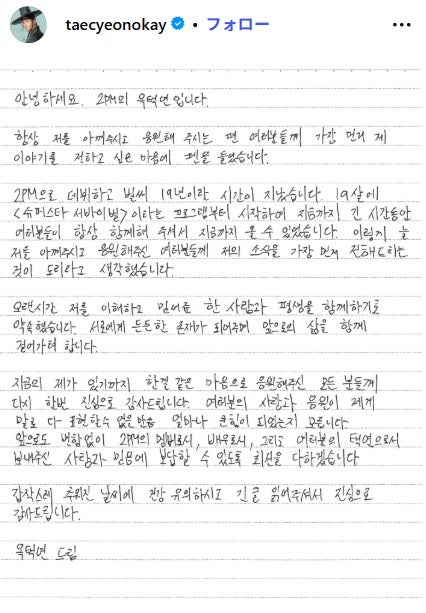 taecyeonokay • フォロー
안녕하세요. 2PM의 옥택연입니다.
항상 저를 아껴주시고 응원해 주시는 팬 여러분들께 가장 먼저 제
이야기를 전하고 싶은 마음에 펜을 들었습니다.
2PM으로 데뷔하고 벌써 19년이란 시간이 지났습니다. 19살에
<슈퍼스타 서바이벌>이라는 프로그램부터 시작하여 지금까지 긴 시간동안
여러분들이 항상 함께해 주셔서 지금까지 올 수 있었습니다. 이렇게 늘
저를 아껴주시고 응원해주신 여러분들께 저의 소식을 가장 먼저 전해드리는
것이 도리라고 생각했습니다.
오랜시간 저를 이해하고 믿어준 한 사람과 평생을 함께하기로
약속했습니다. 서로에게 든든한 존재가 되어주며 앞으로의 삶을 함께
걸어가려 합니다.
지금의 제가 있기까지 한결 같은 마음으로 응원해주신 모든 분들께
다시 한번 진심으로 감사드립니다. 여러분의 사랑과 응원이 제게
말로 다 표현할 수 없을만큼 얼마나 큰힘이 되었는지 모릅니다.
앞으로도 변함없이 2PM의 멤버로서, 배우로서, 그리고 여러분의 택연으로서
보내주신 사랑과 믿음에 보답할 수 있도록 최선을 다하겠습니다
갑작스레 추워진 날씨에 건강 유의하시고 긴글 읽어주셔서 진심으로
감사드립니다.
옥택연 드림